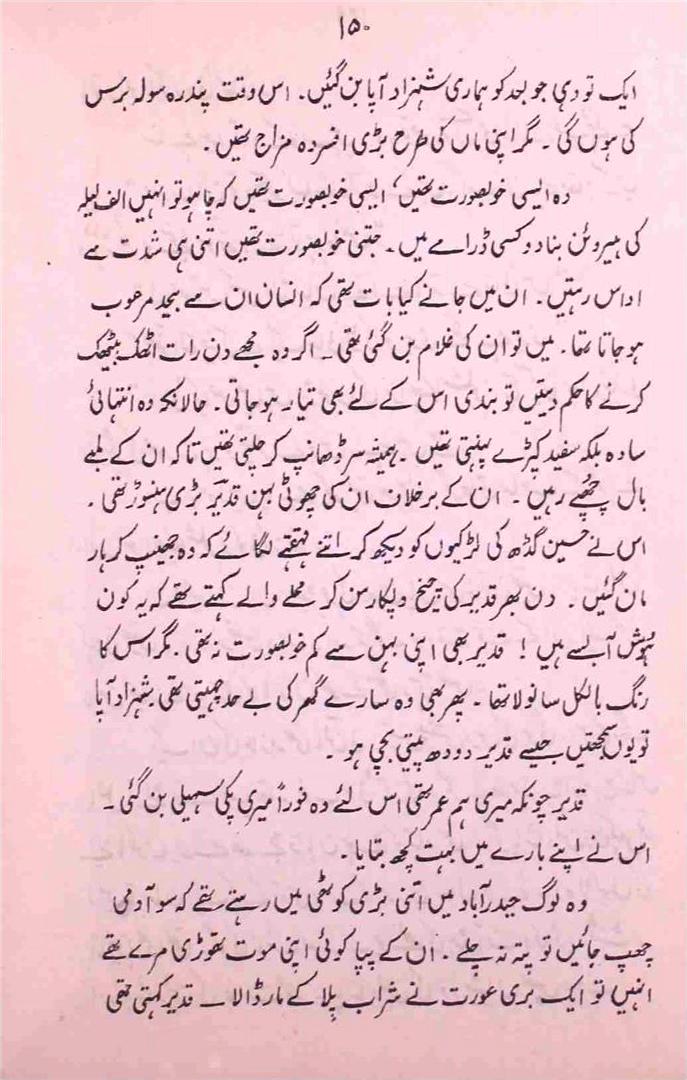 ۱۵۰
ایک تو وہی جو بعد کو ہماری شہزاد آپا بن گئیں۔ اس وقت پندرہ سولہ برس
کی ہوں گی۔ مگر اپنی ماں کی طرح بڑی افسردہ مزاج تھیں۔
وہ ایسی خوبصورت تھیں، ایسی خوبصورت تھیں کہ چاہو تو انہیں الف لیلہ
کی ہیروئن بنا دو کسی ڈرامے میں۔ جتنی خوبصورت تھیں اتنی ہی شدت سے
اداس رہتیں۔ ان میں جانے کیا بات تھی کہ انسان ان سے بیحد مرعوب
ہو جاتا تھا۔ میں تو ان کی غلام بن گئی تھی۔ اگر وہ مجھے دن رات اٹھک بیٹھک
کرنے کا حکم دیتیں تو بندی اس کے لئے بھی تیار ہو جاتی۔ حالانکہ وہ انتہائی
سادہ بلکہ سفید کپڑے پہنتی تھیں۔ ہمیشہ سر ڈھانپ کر چلتی تھیں تاکہ ان کے لمبے
بال چھپے رہیں۔ ان کے برخلاف ان کی چھوٹی بہن قدیر بڑی ہنسوڑ تھی۔
اس نے حسین گڈھ کی لڑکیوں کو دیکھ کر اتنے قہقہے لگائے کہ وہ جھینپ کر ہار
مان گئیں۔ دن بھر قدیر کی چیخ و پکار سن کر محلے والے کہتے تھے کہ یہ کون
آبسے ہیں! قدیر بھی اپنی بہن سے کم خوبصورت نہ تھی۔ مگر اس کا
رنگ بالکل سانولا تھا۔ پھر بھی وہ سارے گھر کی بے حد چہیتی تھی شہزاد آپا
تو یوں سمجھتیں جیسے قدیر دودھ پیتی بچی ہو۔
قدیر چونکہ میری ہم عمر تھی اس لئے وہ فوراً میری پکی سہیلی بن گئی۔
اس نے اپنے بارے میں بہت کچھ بتایا۔
وہ لوگ حیدرآباد میں اتنی بڑی کوٹھی میں رہتے تھے کہ سو آدمی
چھپ جائیں تو پتہ نہ چلے۔ ان کے پپا کوئی اپنی موت تھوڑی مرے تھے
انہیں تو ایک بری عورت نے شراب پلا کے مار ڈالا۔ قدیر کہتی تھی